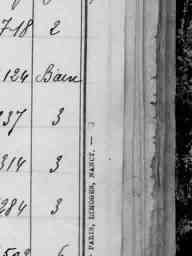 718 2
124 Bien
237 3
314 3
284 3
PARIS, LIMOGES, NANCY. —